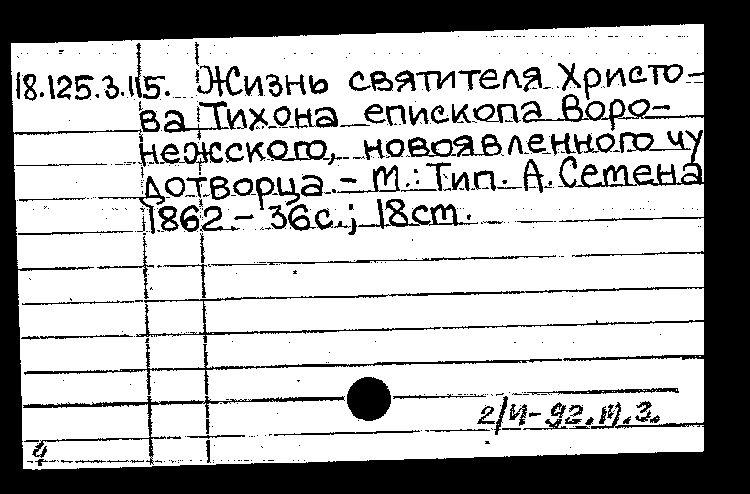 18.125.3.115. Жизнь святителя Христо-
ва Тихона епископа Воро-
нежского, новоявленного чу
дотворца.- М.: Тип. А. Семена
1862.- 36с.; 18ст.
2/И-92.М.З.